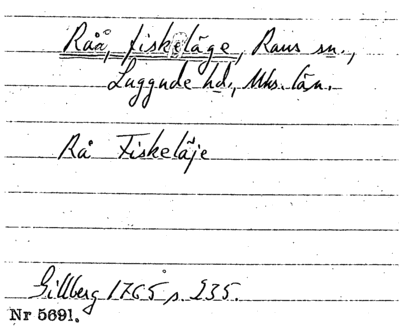 Råå, fiskeläge, Raus sn.,
Luggude hd., Mhs. län.
Rå Fiskeläje
Gillberg 1765 s. 235.
Nr 5691.